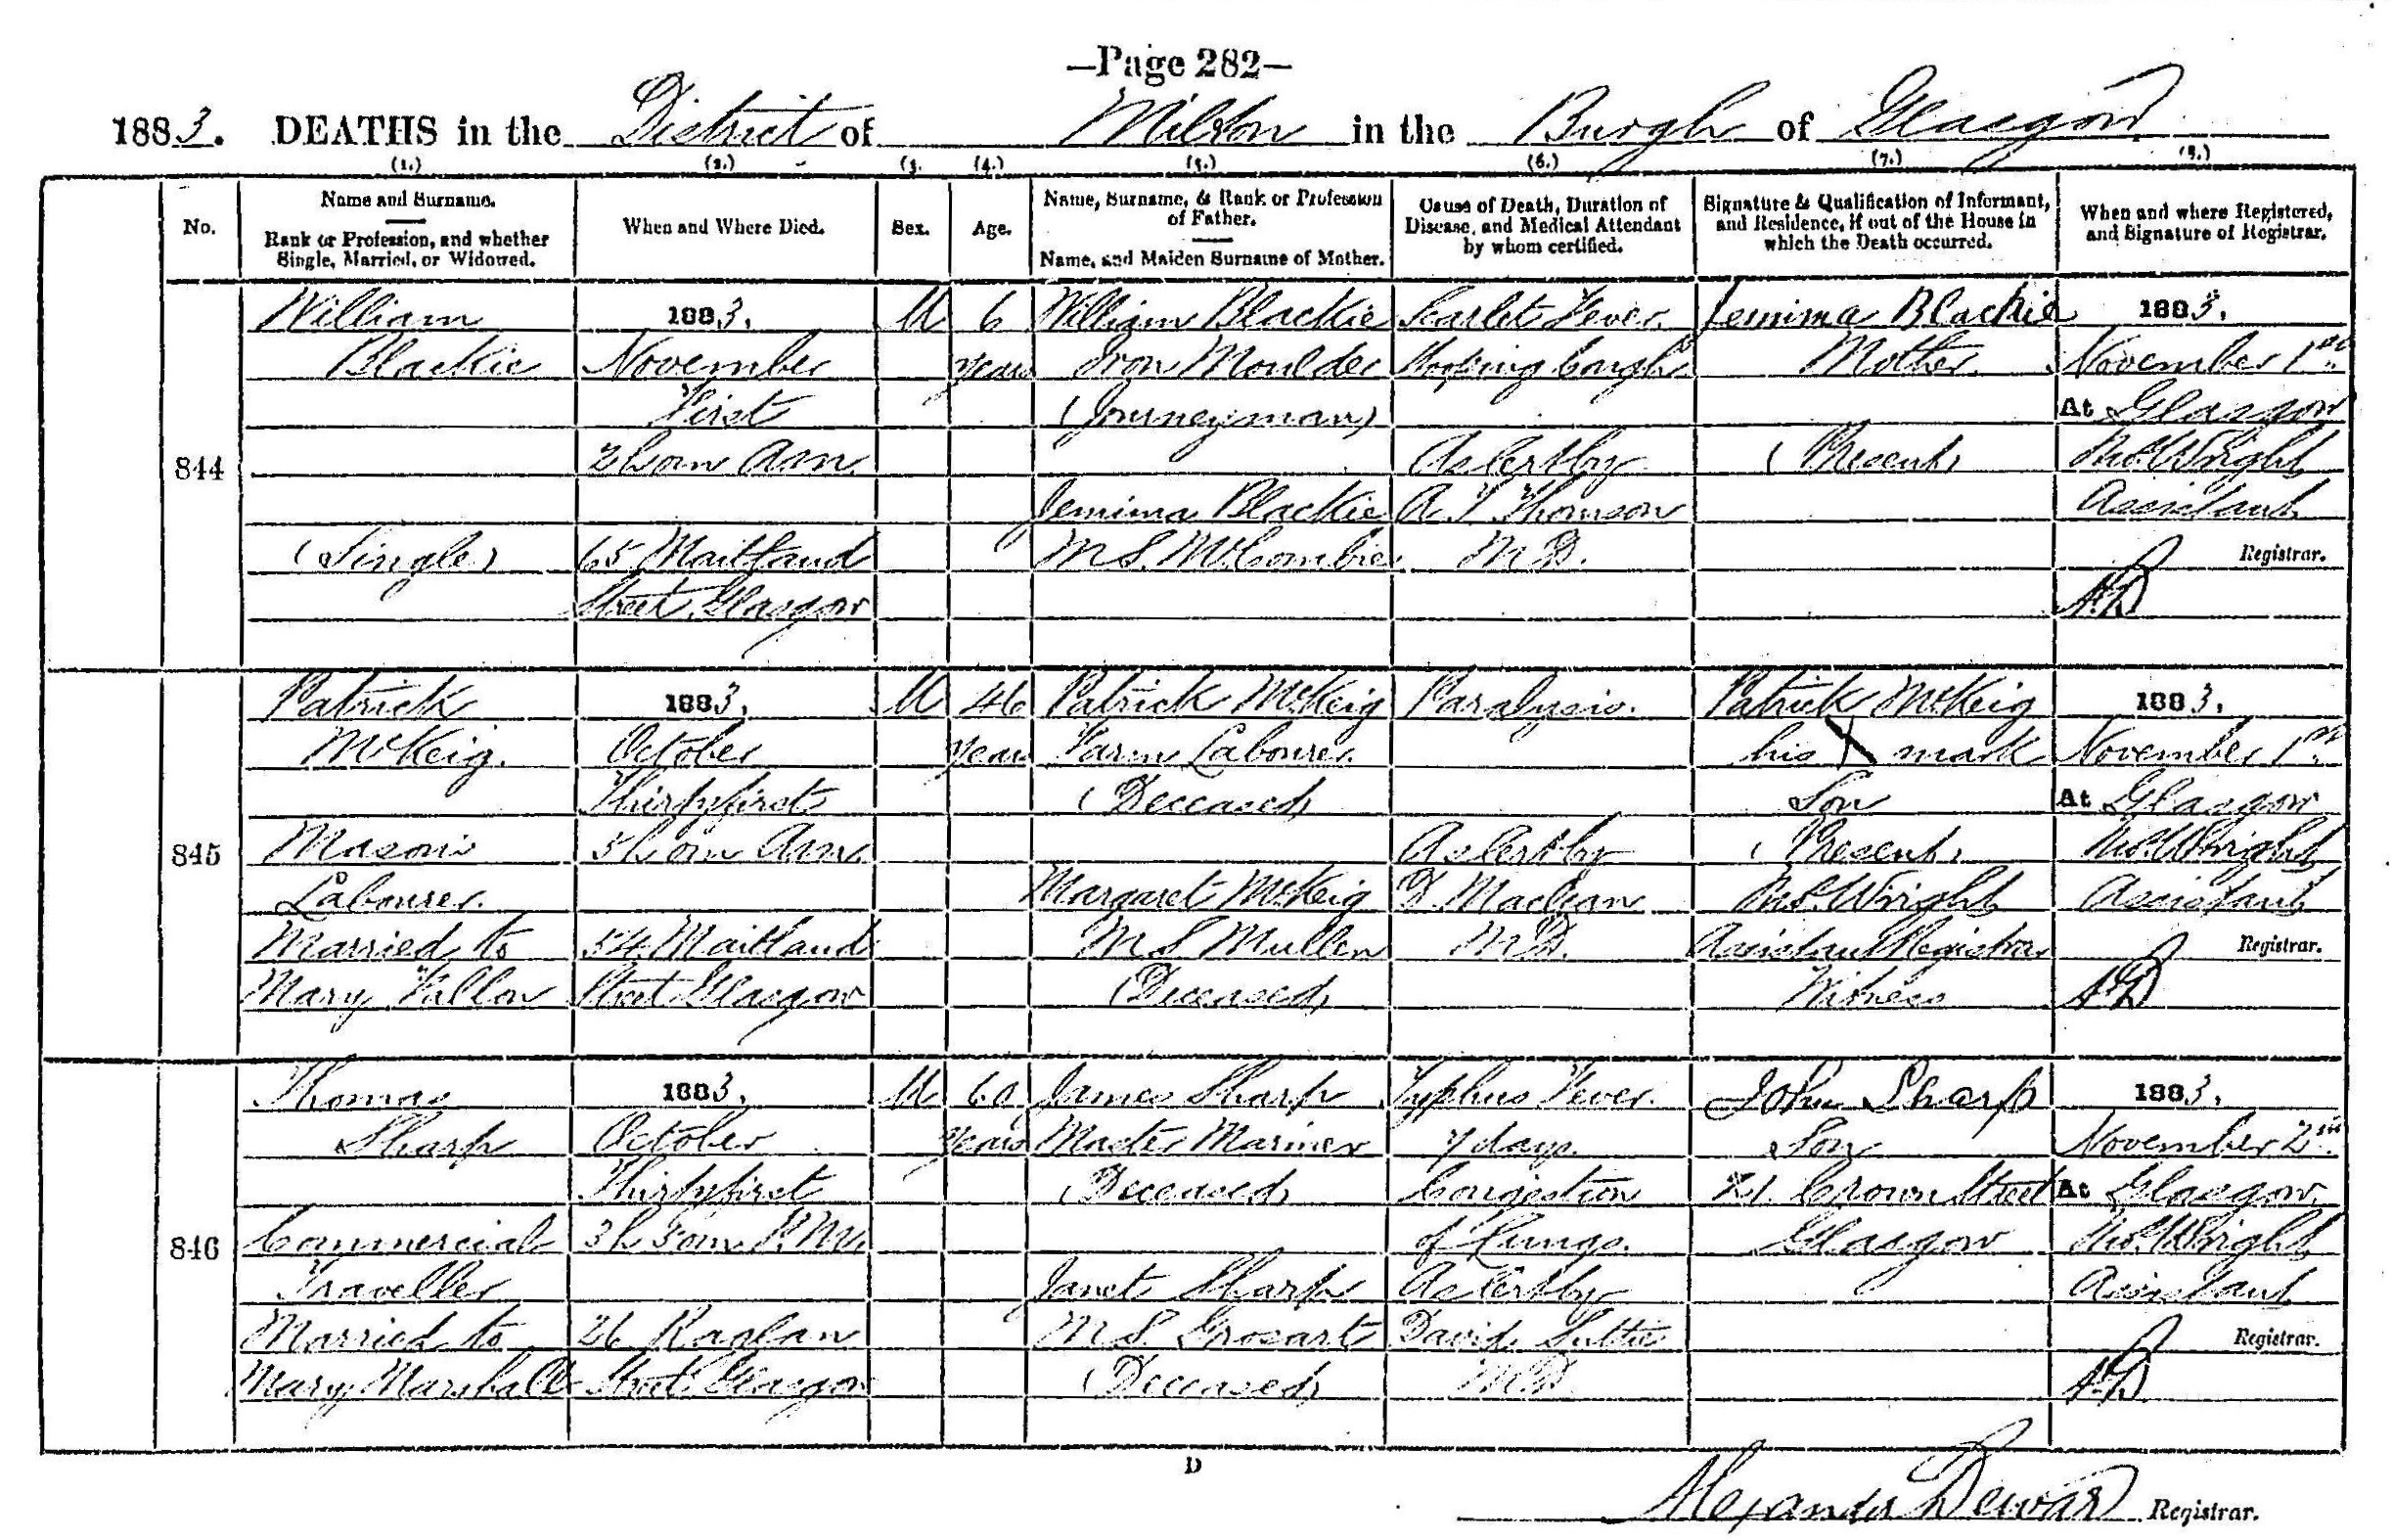 —Page 282—
1883. DEATHS in the District of Milton in the Burgh of Glasgow
(1.) (2.) (3. (4.) (5.) (6.) (7.) (8.)
No.
Name and Surname.
Rank or Profession, and whether
Single, Married, or Widowed.
When and Where Died.
Sex.
Age.
Name, Surname, & Rank or Profession
of Father.
Name, and Maiden Surname of Mother.
Cause of Death, Duration of
Disease, and Medical Attendant
by whom certified.
Signature & Qualification of Informant,
and Residence, if out of the House in
which the Death occurred.
When and where Registered,
and Signature of Registrar.
844
William
Blackie
(Single)
1883.
November
First
2h 0m A.M.
65 Maitland
Street Glasgow
M
6
years
William Blackie
Iron Moulder
(Journeyman)
Jemima Blackie
M.S. McCombie
Scarlet Fever.
Hooping Cough
As Cert by
A. T. Thomson
M.D.
Jemima Blackie
Mother.
(Present)
1883.
November 1st
At Glasgow
Wright
Assistant
Registrar.
A.D.
845
Patrick
McKeig.
Mason's
Labourer.
Married to
Mary Fallon
1883.
October
Thirtyfirst
5h 0m A.M.
54 Maitland
Street Glasgow
M
46
years
Patrick McKeig
Farm Labourer.
(Deceased)
Margaret McKeig
M.S. Mullen
(Deceased)
Paralysis.
As Cert by
D. Maclean
M.D.
Patrick McKeig
his X mark
Son
(Present)
Wright
Assistant Registrar
Witness
1883.
November 1st
At Glasgow
Wright
Assistant
Registrar.
A.D.
846
Thomas
Sharp
Commercial
Traveller
Married to
Mary Marshall
1883.
October
Thirtyfirst
3h 30m P.M.
26 Raglan
Street Glasgow
M
60
years
James Sharp
Master Mariner
(Deceased)
Janet Sharp
M.S. Grosart
(Deceased)
Typhus Fever.
7 days.
Congestion
of Lungs.
As Cert by
David Suttie
M.D.
John Sharp
Son
21 Crown Street
Glasgow
1883.
November 2nd
At Glasgow.
Wright
Assistant
Registrar.
A.D.
D
Alexander Dewar Registrar.